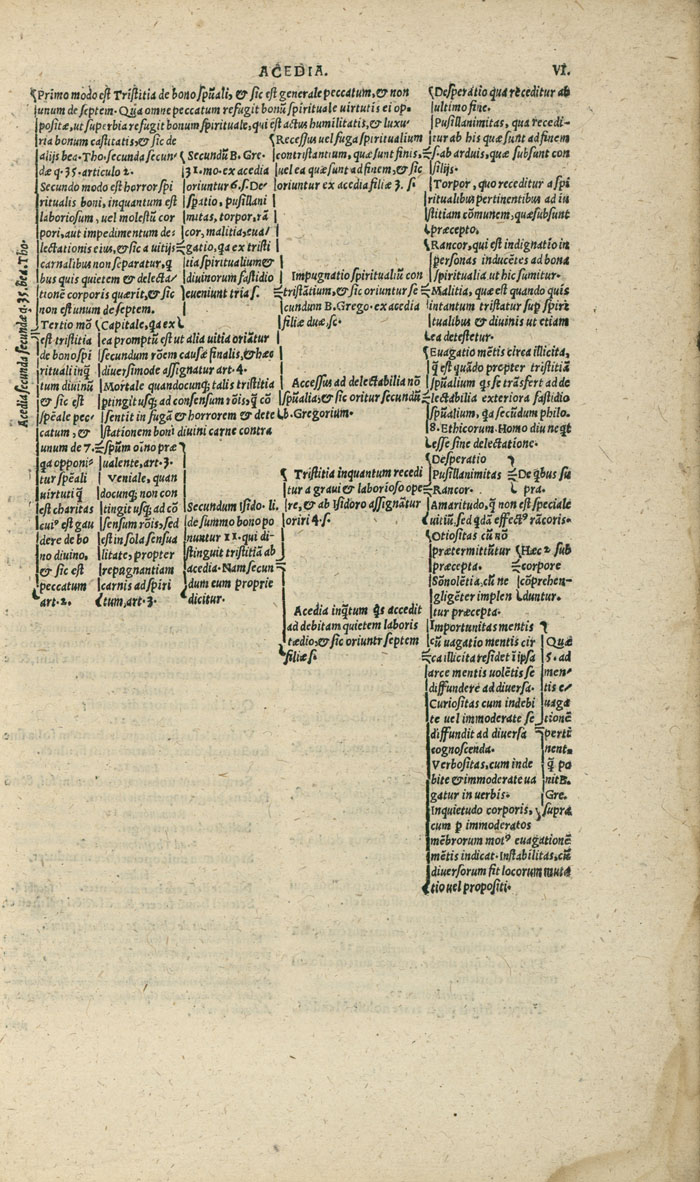 ACEDIA.
VI.
Acedia secunda secundæ q. 35. bea. Tho.
Primo modo est Tristitia de bono spūali, & sic est generale peccatum, & non
unum de septem. Quia omne peccatum refugit bonū spirituale virtutis ei op-
positæ, ut superbia refugit bonum spirituale, qui est actus humilitatis, & luxu
ria bonum castitatis, & sic de
alijs bea. Tho. secunda secun
dæ q. 35. articulo 2.
Secundo modo est horror spi
ritualis boni, inquantum est
laboriosum, uel molestū cor
pori, aut impedimentum de-
lectationis eius, & sic a uitijs
carnalibus non separatur, q̄
bus quis quietem & delecta/
tionē corporis quærit, & sic
non est unum de septem.
Tertio mō
est tristitia
de bono spi
rituali inq̄
tum diuinū
& sic est
spēale pec
catum, &
unum de 7.
qa opponi-
tur spēali
uirtuti q̄
est charitas
cui⁹ est gau
dere de bo
no diuino,
& sic est
peccatum
art. 2.
Capitale, qa ex
ea promptū est ut alia uitia oriātur
secundum rōem causæ finalis, & hæc
diuersimode assignatur art. 4.
Mortale quandocunq; talis tristitia
ptingit usq; ad consensum rōis, q̄ cō
sentit in fugā & horrorem & dete
stationem boni diuini carne contra
spūm oīno præ
ualente, art. 3.
Veniale, quan
docunq; non con
tingit usq; ad cō
sensum rōis, sed
est in sola sensua
litate, propter
repugnantiam
carnis ad spiri
tum, art. 3.
Secundū B. Gre.
31. mo. ex acedia
oriuntur 6. s. De/
spatio, pusillani
mitas, torpor, rā
cor, malitia, eua/
gatio, qa ex tristi
tia spiritualium &
diuinorum fastidio
eueniunt tria s.
Secundum Isido. li.
de summo bono po
nuntur 11. qui di-
stinguit tristitiā ab
acedia. Nam secun
dum eum proprie
dicitur.
Recessus uel fuga spiritualium
contristantium, quæ sunt finis,
uel ea quæ sunt ad finem, & sic
oriuntur ex acedia filiæ 3. s.
Impugnatio spiritualiū con
tristātium, & sic oriuntur se
cundum B. Grego. ex acedia
filiæ duæ, s.
Accessus ad delectabilia nō
spūalia, & sic oritur secundū
b. Gregorium.
Tristitia inquantum recedi
tur a graui & laborioso ope
re, & ab Isidoro assignātur
oriri 4. s.
Acedia inq̄tum q̄s accedit
ad debitam quietem laboris
tædio, & sic oriuntr septem
filiæ s.
Desperatio qua receditur ab
ultimo fine.
Pusillanimitas, qua recedi-
tur ab his quæ sunt ad finem
s. ab arduis, quæ subsunt con
silijs.
Torpor, quo receditur a spi
ritualibus pertinentibus ad iu
stitiam cōmunem, quæ subsunt
præcepto.
Rancor, qui est indignatio in
personas inducētes ad bona
spiritualia ut hic sumitur.
Malitia, quæ est quando quis
intantum tristatur sup spiri
tualibus & diuinis ut etiam
ea detestetur.
Euagatio mētis circa illicita,
q̄ est quādo propter tristitiā
spūalium q̄s se trāsfert ad de
lectabilia exteriora fastidio
spūalium, qa secūdum philo.
8. Ethicorum. Homo diu neq̄t
esse sine delectatione.
Desperatio
Pusillanimitas
Rancor.
De q̄bus su
pra.
Amaritudo, q̄ non est speciale
uitiū, sed q̄dā effect⁹ rācoris.
Otiositas cū nō
prætermittūtur
præcepta.
Sōnolētia, cū ne
gligēter implen
tur præcepta.
Hæc 2 sub
corpore
cōprehen-
duntur.
Importunitas mentis
cū uagatio mentis cir
ca illicita residet ī ipsa
arce mentis uolētis se
diffundere ad diuersa.
Curiositas cum indebi
te uel immoderate se
diffundit ad diuersa
cognoscenda.
Verbositas, cum inde
bite & immoderate ua
gatur in uerbis.
Inquietudo corporis,
cum p immoderatos
mēbrorum mot⁹ euagationē
mētis indicat. Instabilitas, cū
diuersorum fit locorum muta
tio uel propositi.
Quæ
5. ad
men/
tis e/
uaga
tionē
perti
nent.
q̄ po
nit B.
Gre.
supra